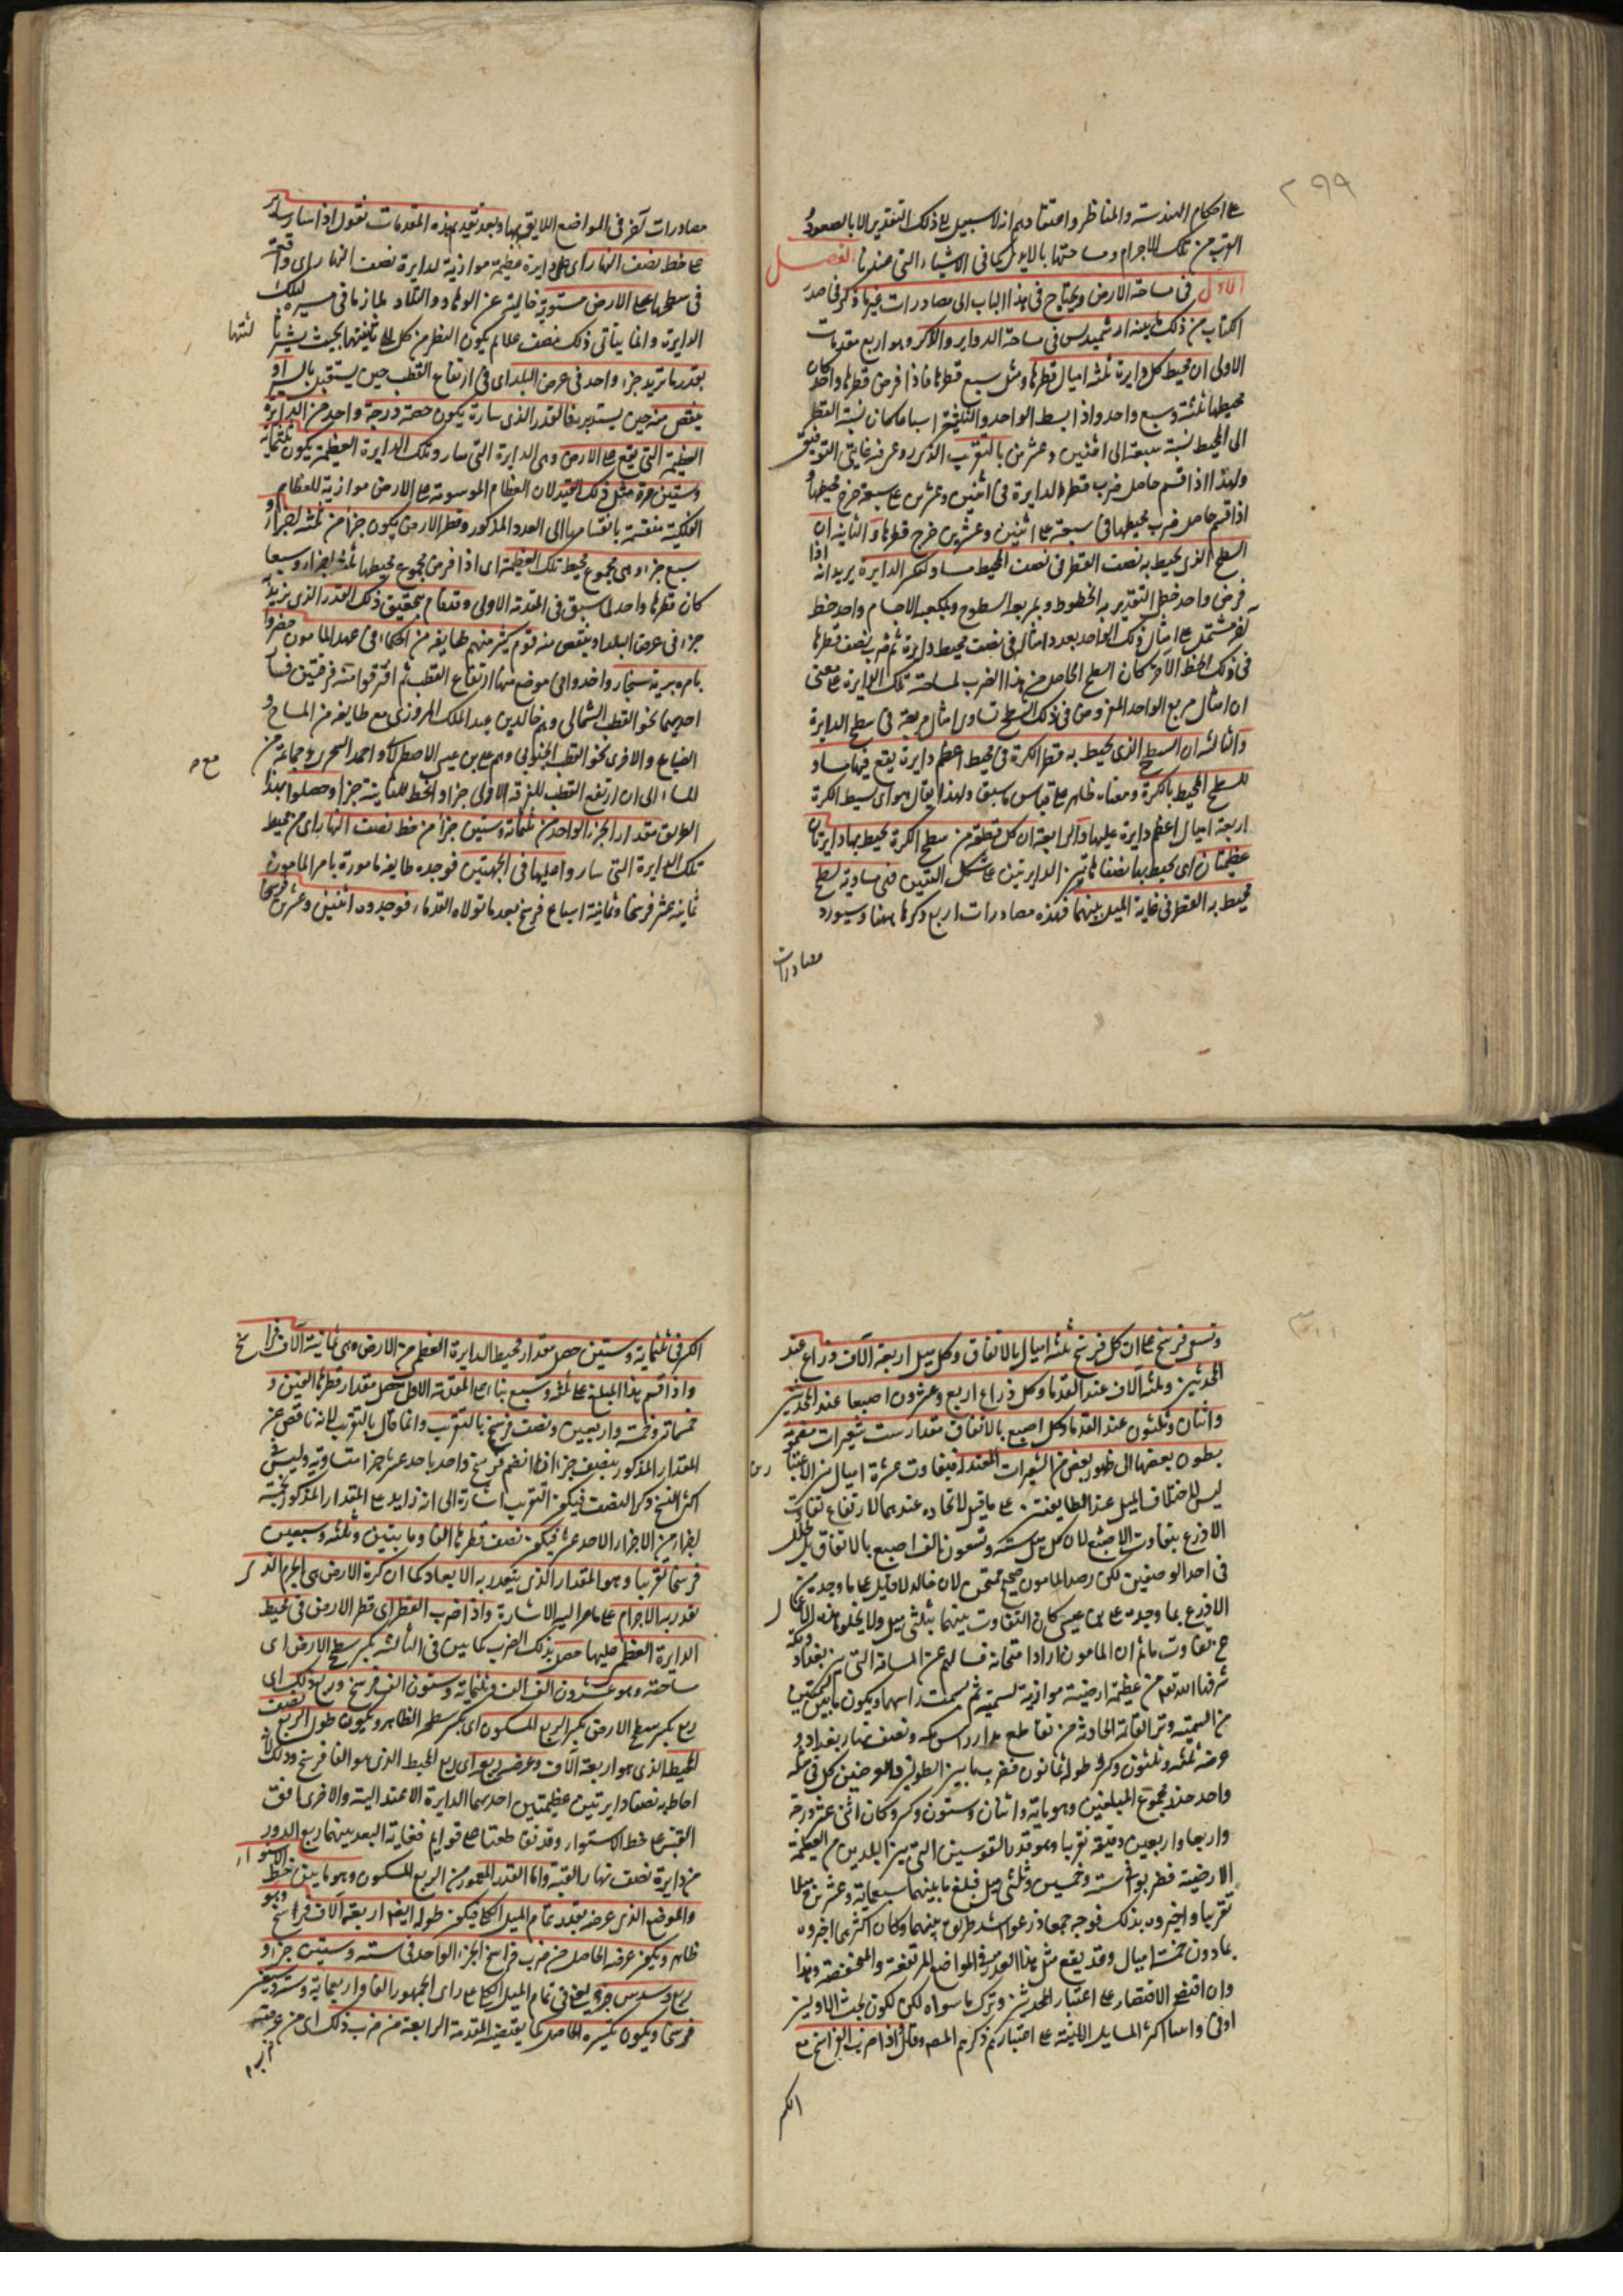 ٢٩٩
على احكام الهندسة والمناظر واعتقادهم انه لا سبيل الى ذلك التقدير الا بالصعود و
القرب من تلك الاجرام ومساحتها بالايدى كما فى الاشياء التى عندنا الفصل
الاول فى مساحة الارض ويحتاج فى هذا الباب الى مصادرات غير ما ذكر فى صدر
الكتاب من ذلك ما بينه ارشميدس فى مساحة الدواير والاكر وهو اربع مقدمات
الاولى ان محيط كل دايرة ثلثة امثال قطرها ومثل سبع قطرها فاذا فرض قطرها واحدا كان
محيطها ثلثة وسبع واحد واذا بسط الواحد والثلثة اسباعا كان نسبة القطر
الى المحيط نسبة سبعة الى اثنين وعشرين بالتقريب الذى
ولهذا اذا قسم حاصل ضرب قطر الدايرة فى اثنين وعشرين على سبعة خرج محيطها و
اذا قسم حاصل ضرب محيطها فى سبعة على اثنين وعشرين خرج قطرها والثانية ان
السطح الذى يحيط به نصف القطر فى نصف المحيط مساو لتكسير الدايرة يريد انه اذا
فرض واحد خطى لتقدير به الخطوط وبمربعه السطوح وبمكعبه الاجسام واحد خط
اخر مشتمل على امثال ذلك الواحد بعدد امثاله فى نصف محيط دايرة ثم ضرب نصف قطرها
فى ذلك الخط الاخر كان السطح الحاصل من هذا الضرب لمساحة تلك الدايرة على معنى
ان امثال مربع الواحد المفروض فى ذلك السطح تساوى امثال مربعه فى سطح الدايرة
والثالثة ان السطح الذى يحيط به قطر الكرة فى محيط اعظم دايرة يقع فيها مساو
للسطح المحيط بالكرة ومعناه ظاهر على قياس ما سبق ولهذا يقال هو اى بسيط الكرة
اربعة امثال اعظم دايرة عليها والرابعة ان كل قطعة من سطح الكرة يحيط بها دايرتان
عظيمتان اى يحيط بها نصفا الدايرتين على شكل فهى مساوية لسطح
يحيط به القطر فى غاية الميل بينهما فهذه مصادرات اربع ذكرها ههنا وسيورد
مصادرات
مصادرات اخر فى المواضع اللايق بها وبعد تقديم هذه المقدمات نقول اذا سار ساير
على خط نصف النهار اى على دايرة عظيمة موازية لدايرة نصف النهار اى واقعة
فى سطحها على الارض مستوية خالية عن الوهاد والتلاد لما زما فى مسيره لتلك
الدايرة وانما يتأتى ذلك بنصب علايم يكون النظر من كل الى تاليتها بحيث يستر ثا
لثتها
بقدر ما تزيد جزء واحد فى عرض البلد اى فى ارتفاع القطب حين يستقبل بالسير او
ينقص منه حين يستدبر فالقدر الذى ساره يكون حصة درجة واحدة من الدايرة
العظيمة التى يقع على الارض وهى الدايرة التى سار وتلك الدايرة العظيمة يكون ثلثماية
وستين مرة مثل ذلك القدر لان العظام الموسومة على الارض موازية للعظام
الفلكية منقسمة بانقسامها الى العدد المذكور وقطر الارض يكون جزأ من ثلثة اجزاء و
سبع جزء وهى مجموع محيط تلك العظيمة اى اذا فرض مجموع محيطها ثلثة اجزاء وسبعا
كان قطرها واحدا لما سبق فى المقدمة الاولى وقد قام بتحقيق ذلك القدر الذى يزيد به
جزء فى عرض البلد او ينقص منه قوم كثير منهم طايفة من الحكماء فى عهد المامون حضروا
بامره برية سنجار واخذوا فى موضع منها ارتفاع القطب ثم افترقوا منه فرقتين فسار
احديهما نحو القطب الشمالى وهم خالد بن عبد الملك المروزى مع طايفة من المساح و
الضياع والاخرى نحو القطب الجنوبى وهم على بن عيسى الاصطرلابى و احمد البحرى مع جماعة من
المساح الى ان ارتفع القطب للفرقة الاولى جزأ وانحط للثانية جزأ وحصلوا بهذا
الطريق مقدار الجزء الواحد من ثلثماية وستين جزأ من خط نصف النهار اى من محيط
تلك الدايرة التى سار واعليها فى الجهتين فوجده طايفة مامورة بامر المامون
ثمانية عشر فرسخا وثمانية اتساع فرسخ بعد ما تولاه القدماء فوجدوه اثنين وعشرين فرسخا
وتسعى فرسخ على ان كل فرسخ ثلثة اميال بالاتفاق وكل ميل اربعة آلاف ذراع عند
المحدثين وثلثة آلاف عند القدماء وكل ذراع اربع وعشرون اصبعا عند المحدثين
واثنان وثلثون عند القدماء وكل اصبع بالاتفاق مقدار ست شعيرات مضمومة
بطون بعضها الى ظهور بعض من الشعيرات المعتدلة فتفاوت عشرة اميال بين الاعتبارين
ليس لاختلاف الميل عند الطايفتين على ما قيل لاتحاده عندهما لارتفاع تفاوت
الاذرع بتفاوت الاصابع لان كل ميل ستة وتسعون الف اصبع بالاتفاق بل لخلل
فى احد الرصدين لكن رصد المامون صحيح ممتحن لان خالدا لما قابل ما وجده من
الاذرع بما وجده على بن عيسى كان التفاوت بينهما بثلثى ميل ولا يخلو هذه الاعمال
عن تفاوت ما ثم ان المامون اراد امتحانه فسالهم عن المسافة التى بين بغداد ومكة
شرفها الله تعالى من عظيمة ارضية موازية لسمتية ثم بسمت راسيهما ويكون ما بين السمتين
من السمتية وتر القائمة الحادثة من تقاطع مدار راس مكه ونصف نهار بغداد و
عرضه ثلثة وثلثون وكسر وطوله ثمانون فضرب ما بين الطولين والعرضين كل فى مثله
واخذ جذر مجموع المبلغين وهو ماية واثنان وستون وكسر وكان اثنى عشر درجة
واربعا واربعين دقيقة تقريبا وهو قدر القوسين التى بين البلدين من العظيمة
الارضية فضربوه فى ستة وخمسين وثلثى ميل فبلغ ما بينهما سبعماية وعشرين ميلا
تقريبا واخبروه بذلك فوجه جمعا ذرعوا اسد طريق بينهما وكان اكثر مما اخبروه
بما دون خمسة اميال وقد يقع مثل هذا القدر فى المواضع المرتفعة والمنخفضة وهذا
وان اقتضى الاقتصار على اعتبار المحدثين وترك ما سواه لكن لكون بحث الاولين
اوفى واسد اكثر المسايل المبنية على اعتبارهم ذكرهم المصر وقال فاذا ضرب الفراسخ مع
الكسر
الكسر فى ثلثماية وستين حصل مقدار محيط الدايرة العظمى من الارض وهى ثمانية آلاف فراسخ
واذا قسم هذا المبلغ على ثلثة وسبع بناء على المقدمة الاولى حصل مقدار قطرها الفين و
خمسمائة وخمسة واربعين ونصف فرسخ بالتقريب وانما قال بالتقريب لانه ناقص عن
المقدار المذكور بنصف جزء اذا انقسم فرسخ واحد باحد عشر جزءا متساوية وليس فى
اكثر النسخ ذكر النصف فيكون التقريب اشارة الى انه زايد على المقدار المذكور بخمسة
اجزاء من الاجزاء الاحد عشر فيكون نصف قطرها الفا ومايتين وثلثة وسبعين
فرسخا تقريبا وهو المقدار الذى يتقدر به الابعاد كما ان كرة الارض هى الجرم الذى
تقدر به الاجرام على ما مر اليه الاشارة واذا ضرب القطر اى قطر الارض فى محيط
الدايرة العظمى عليها حصل بذلك الضرب كما بين فى الثالثة تكسير سطح الارض اى
مساحته وهو عشرون الف الف وثلثماية وستون الف فرسخ وربع ذلك اى
ربع تكسير سطح الارض تكسير الربع المسكون اى تكسير سطحه الظاهر ويكون طول الربع نصف
المحيط الذى هو اربعة آلاف وعرضه ربعه اى ربع المحيط الذى هو الفا فرسخ وذلك لانه
احاط به نصفا دايرتين عظيمتين احديهما الدايرة الاعتدالية والاخرى افق
القبة على خط الاستواء وقد تقاطعتا على قوايم فغاية البعد بينهما ربع الدور
من دايرة نصف نهار القبة واما القدر المعمور من الربع المسكون وهو ما بين خط الاستواء
والموضع الذى عرضه بقدر تمام الميل الكلى فيكون طوله ايضا اربعة آلاف فرسخ وهو
ظاهر ويكون عرضه الحاصل من ضرب فراسخ الجزء الواحد فى ستة وستين جزء و
ربع وسدس جزء يعنى فى تمام الميل الكلى على راى الجمهور الفا واربعماية وستة وسبعين
فرسخا ويكون تكسيره الحاصل كما يقتضيه المقدمة الرابعة من ضرب ذلك اى من عرضه